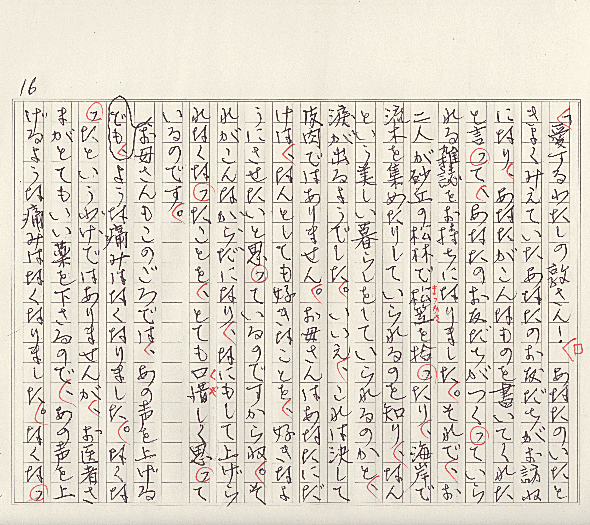 16
愛するわたしの敦さん！　あなたのいたと
きよくみえていたあなたのお友だちがお訪ね
になり、あなたがこんなものを書いてくれた
と言って、あなたのお友だちがつくっていら
れる雑誌をお持ちになりました。それで、お
二人が砂丘の松林で松笠を拾ったり、海岸で
流木を集めたりしていられるのを知り、なん
という美しい暮らしをしていられるのかと、
涙が出るようでした。いいえ、これは決して
皮肉ではありません。お母さんはあなたにだ
けは、なんとしても好きなことを、好きなよ
うにさせたいと思っているのですからね。そ
れがこんなからだになり、なにもして上げら
れなくなったことを、とても口惜しく思って
いるのです。
お母さんもこのごろでは、あの声を上げる
ような痛みはなくなりました。なくな
ったというわけではありませんが、お医者さ
まがとてもいい薬を下さるので、あの声を上
げるような痛みはなくなりました。なくなっ